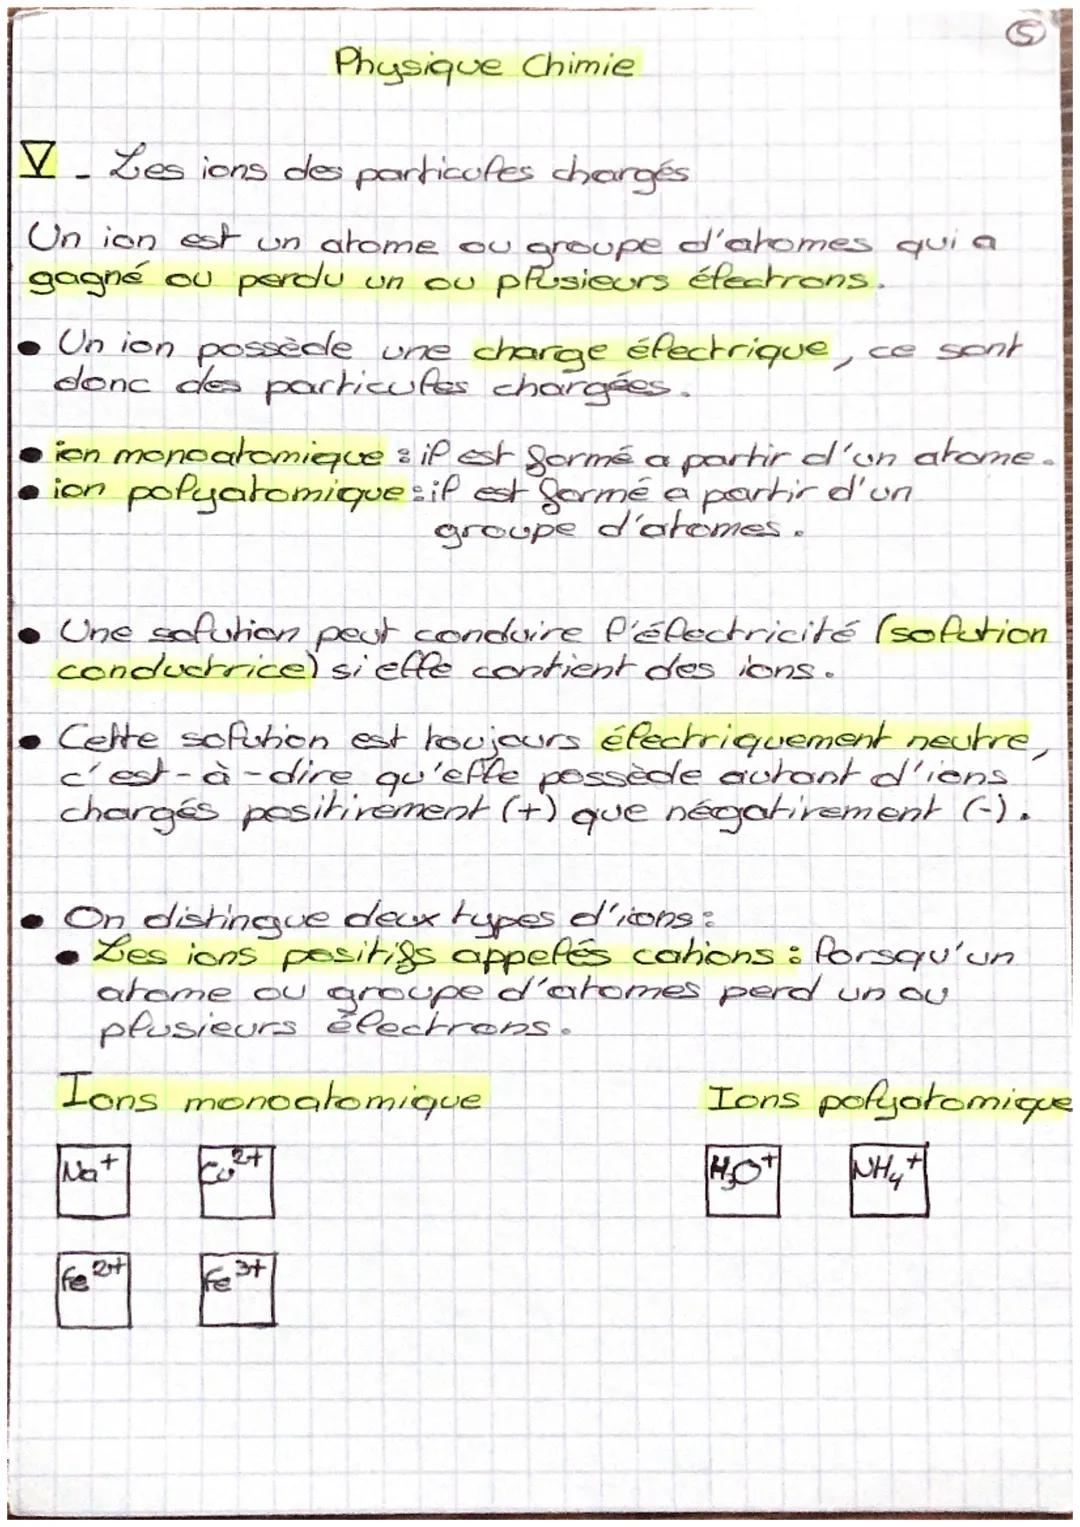 ⑤
Physique Chimie
V - Les ions des particules chargés
Un ion est un atome ou groupe d'atomes qui a
gagné ou perdu un ou plusieurs électrons.
• Un ion possède une charge électrique, ce sont
donc des particules chargées.
• ion monoatomique : il est formé a partir d'un atome.
• ion polyatomique : il est formé a partir d'un
groupe d'atomes.
• Une solution peut conduire l'électricité (solution
conductrice) si elle contient des ions.
• Cette solution est toujours électriquement neutre,
c'est-à-dire qu'elle possède autant d'ions
chargés positivement (+) que négativement (-).
• On distingue deux types d'ions :
• Les ions positifs appelés cations : lorsqu'un
atome ou groupe d'atomes perd un ou
plusieurs électrons.
Ions monoatomique Ions polyatomique
Na⁺ Cu²⁺ H₃O⁺ NH₄⁺
Fe²⁺ Fe³⁺